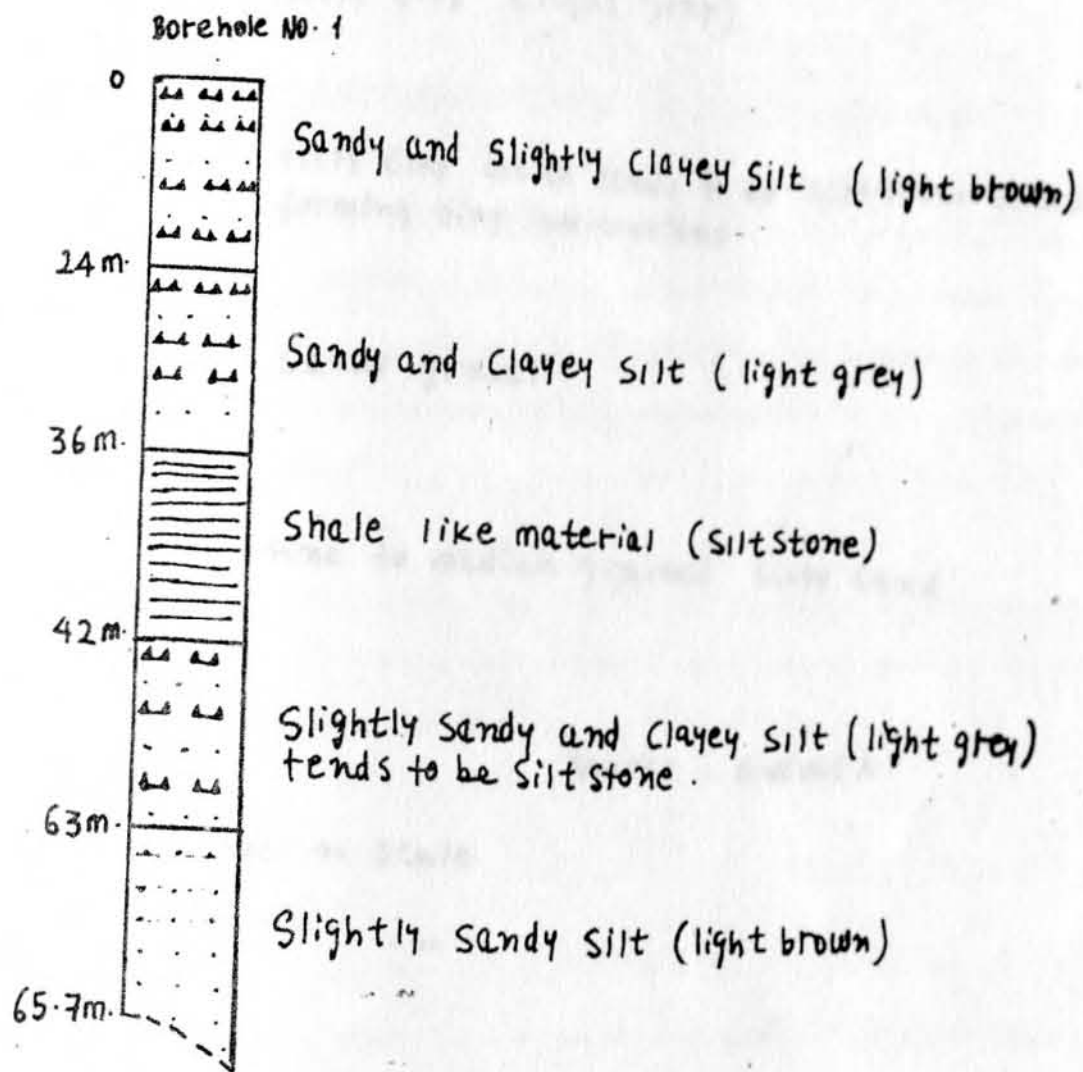 Borehole No. 1
0
Sandy and Slightly Clayey Silt (light brown)
24m.
Sandy and Clayey Silt (light grey)
36m.
Shale like material (Siltstone)
42m.
Slightly Sandy and Clayey Silt (light grey)
tends to be Siltstone.
63m.
Slightly Sandy Silt (light brown)
65.7m.